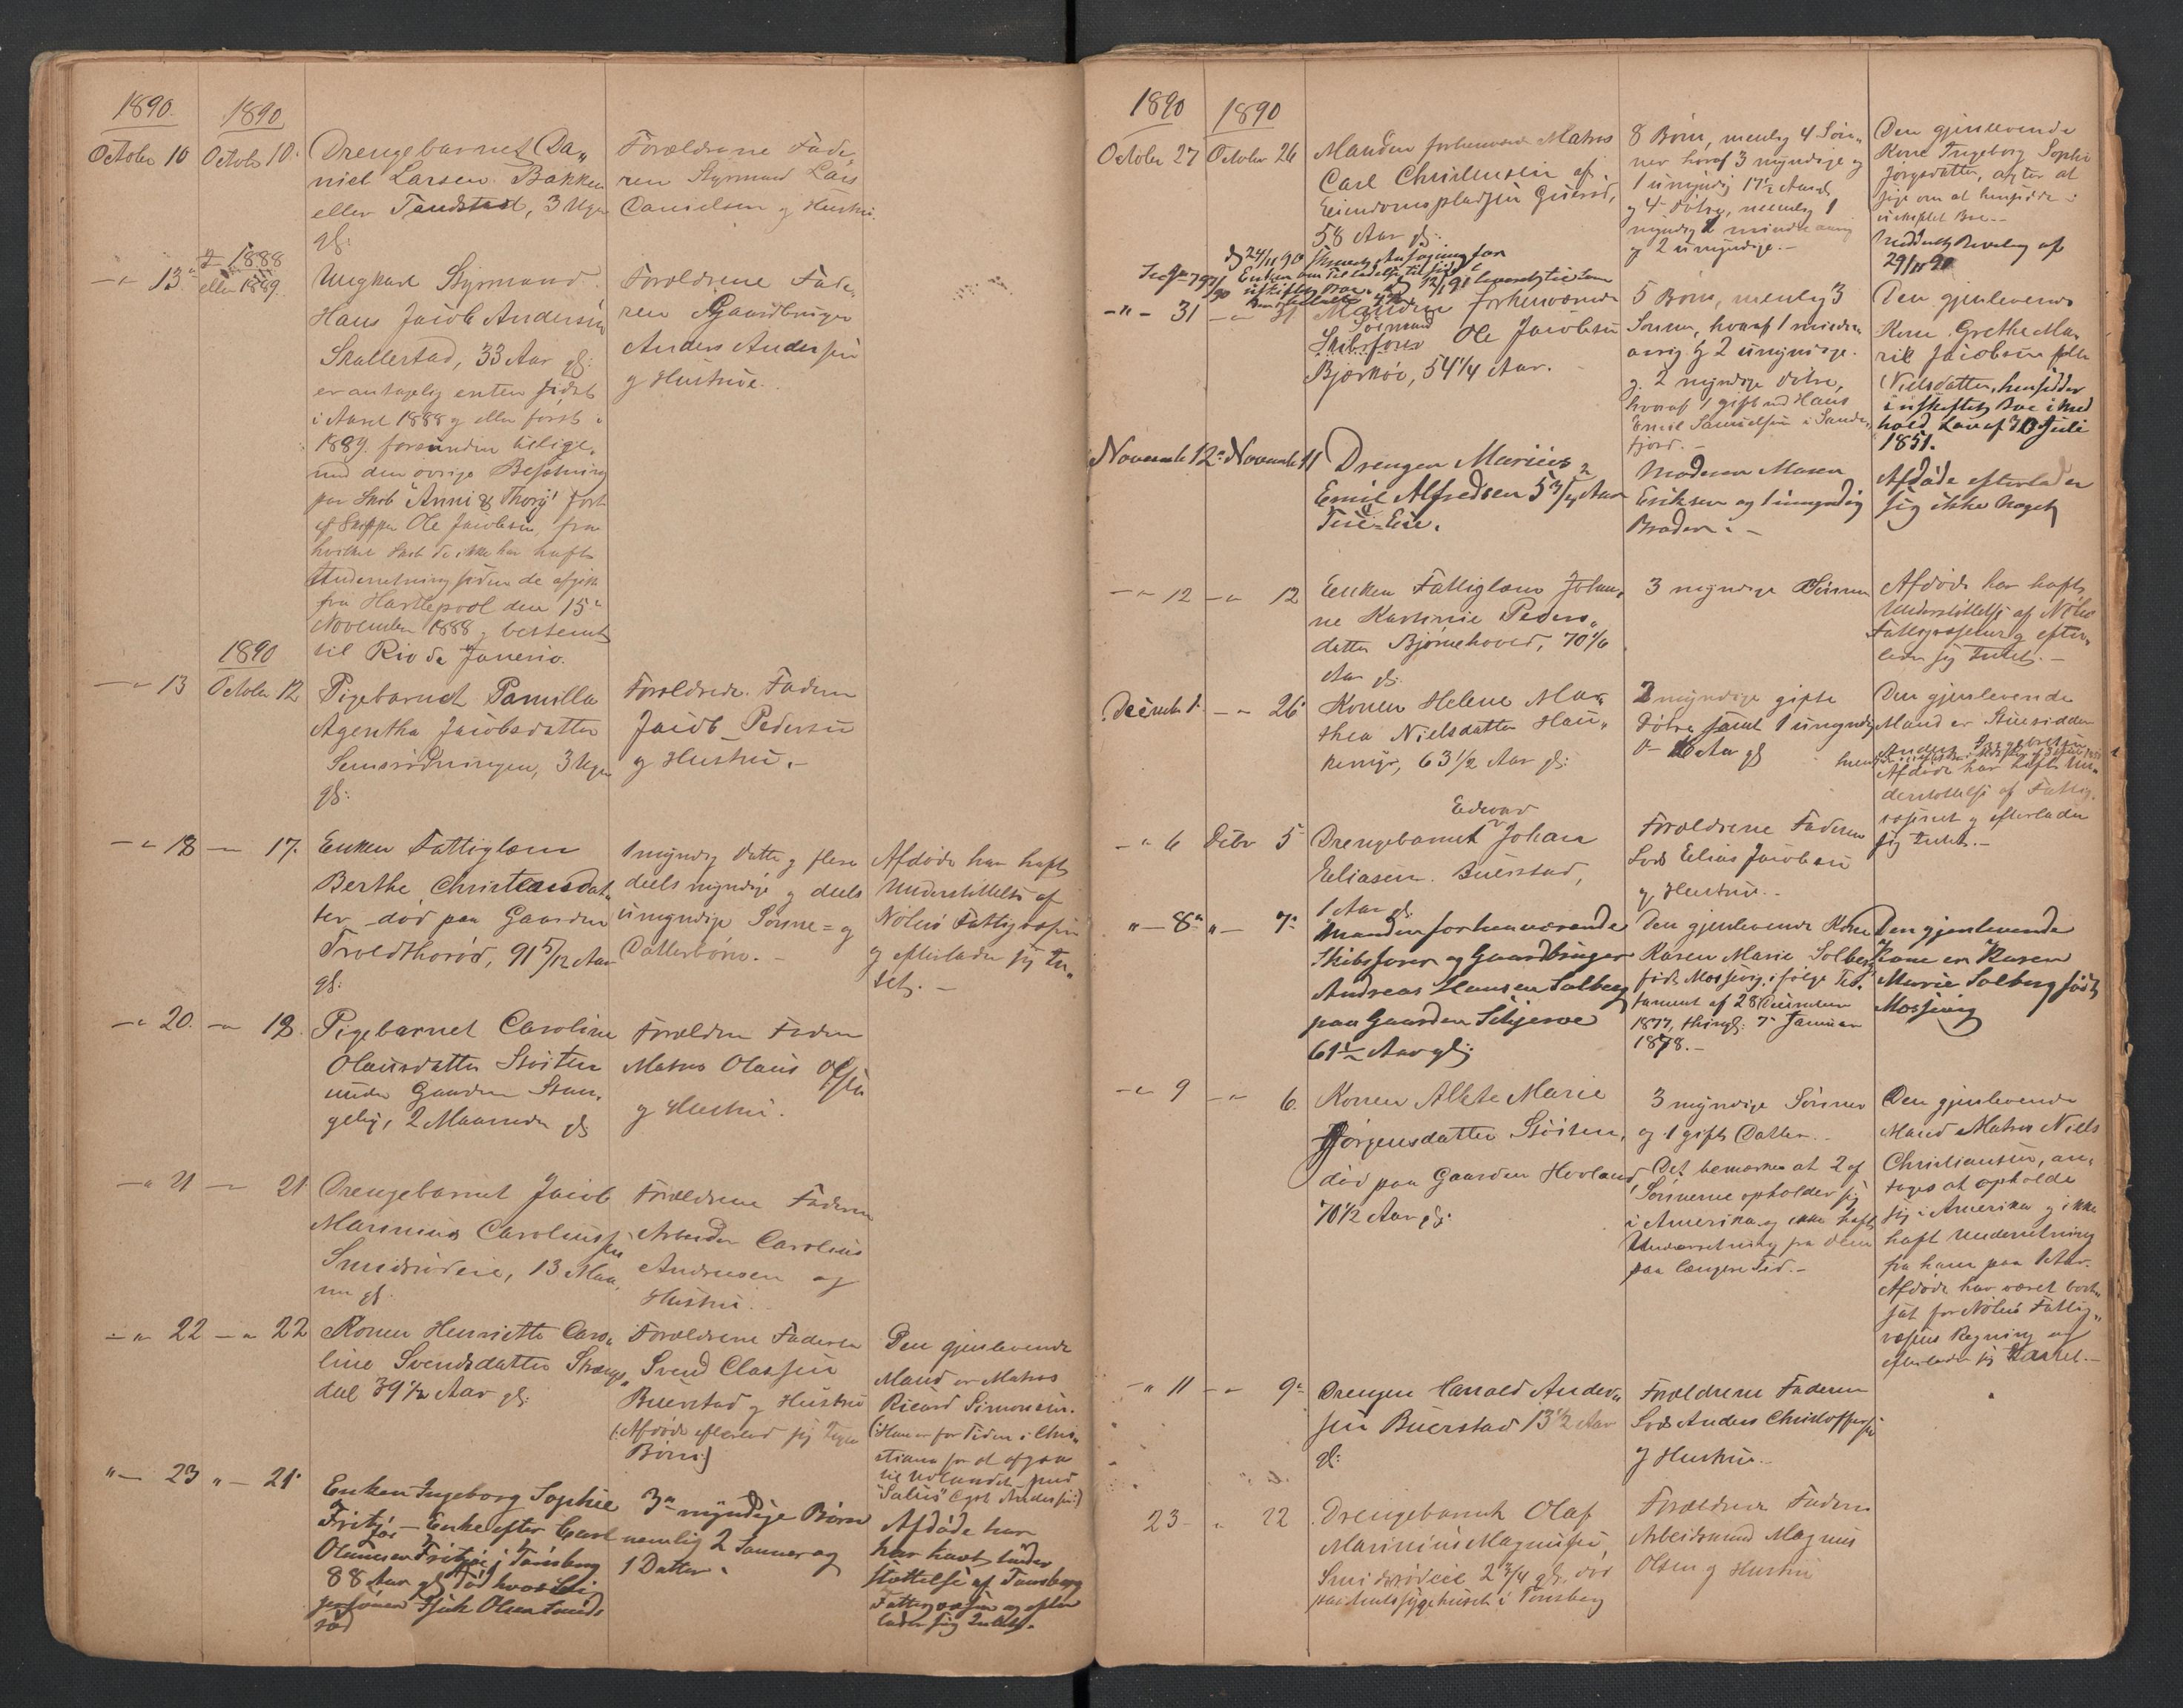 1890. 1890
Octobr 10 Octobr 10. Drengebarnet Da„
niel Larsen Bakken
eller Tandstad, 3 Uger
gl:
Forældrene Fade
ren Styrmand Lars
Danielsen og Hustru.
-"- 13 1888
eller 1889. Ungkarl Styrmand
Hans Jacob Andersen
Skallestad, 33 Aar gl:
er antagelig enten sidst
i Aaret 1888 eller først i
1889 forsvunden tillige„
med den øvrige Besætning
paa Skib "Anni & Thorg" ført
af Skipper Ole Jacobsen, fra
hvilket Skib de ikke har haft
Underretning siden de afgik
fra Hartlepool den 15de
November 1888 bestemt
til Rio de Janerio.
Forældrene Fade„
ren Gaardbruger
Anders Andersen
og Hustrue.
1890
-"- 13 Octobr 12 Pigebarnet Pamilla
Agentha Jacobsdatter
Semsrødningen, 3 Uger
gl:
Forældrene Faderen
Jacob Pedersen
og Hustru.-
-"- 18 -"- 17. Enken Fattiglem
Berthe Christensdat„
ter død paa Gaarden
Troldthorød, 91 5/12 Aar
gl:
1 myndig Datter og flere
deels myndige og deels
umyndige Sønne= og
Datterbørn.-
Afdøde har haft
Understøttelse af
Nøtterø Fattigvæsen
og efterlader sig In„
tet.-
-"- 20. -"- 18. Pigebarnet Caroline
Olausdatter Støiten
under Gaarden Stan„
geby, 2 Maaneder gl:
Forældrene Faderen
Matros Olaus Olsen
og Hustru.
-"- 21 -"- 21 Drengebarnet Jacob
Marinius Caroliussen
Smidsrødeie, 13 Maa„
ner gl:
Forældrene Faderen
Arbeider Carolius
Andresen og
Hustru.
-"- 22 -"- 22 Konen Henriette Caro„
line Svendsdatter Strengs„
dal 39 1/2 Aar gl:
Forældrene Faderen
Svend Classen
Buerstad og Hustru
(: Afdøde efterlod sig Ingen
Børn :)
Den gjenlevende
Mand er Matros
Ricard Simonsen.
(: Han er for Tiden i Chri„
stiania for at afgaa
til Udlandet med
"Salus" Capt. Andersen :)
"- 23 "- 21. Enken Ingeborg Sophie
Fritjøe - Enke efter Carl
Olaussen Fritjøe i Tønsberg
88 Aar gl: død hos
Isak Olsen Smids
rød
3 myndige Børn
nemlig 2 Sønner og
1 Datter.
Afdøde har
har havt under
støttelse af Tønsberg
Fattigvæsen og efter
lader sig Intet.
1890 1890
Octobr 27 October 26 Manden forhenværende Matros
Carl Christensen af
Eiendomspladsen Grimsø,
58 Aar gl:
8 Børn, nemlig 4 Søn„
ner hvoraf 3 myndige og
1 umyndig 17 1/2 Aar gl
og 4 Døtre, nemlig 1
myndig 1 mindreaarig
og 2 umyndige.-
Den gjenlevende
Kone Ingeborg Sophie
Jørgsdatter, agter at
sige om at hensidde i
uskiftet Bo.-
Meddelt Bevilling af
29/11 90
24/11 90 Ansøgning fra
Enken om Tilladelse til at sidde i
uskiftet Boe.
-"- 31 -"- 31 Manden forhenværende
Sømand
Skibsfører Ole Jacobsen
Bjerkøe, 54 1/4 Aar.
5 Børn, nemlig 3
Sønner, hvoraf 1 mindre
aarig og 2 umyndige.
og 2 myndige Døtre,
hvoraf 1 gift med Hans
Emil Samuelsen i Sande„
fjord.-
Den gjenlevende
Kone Grethe Ma„
rie Jacobsen født
Nielsdatter, hensidder
i uskiftet Boe i Med
hold Lov af 30 Juli
1851.
Novemb 12. Novemb 11 Drengen Marius
Emil Alfredsen 5 3/4 Aar
Teie=Eie.
Moderen Maren
Eriksen og 1 umyndig
Broder.-
Afdøde efterlader
sig ikke noget
-"- 12 -"- 12 Enken Fattiglem Johan„
ne Katrine Peders„
datter Bjørnehoved, 70 1/6
Aar gl:
3 myndige Sønner
Afdøde har haft
Understøttelse af Nøtterø
Fattigvæsen og efter„
lader sig Intet.-
Decemb 1. -"- 26 Konen Helene Mar„
thea Nielsdatter Hau„
kemyr, 63 1/2 Aar gl:
2 myndige gifte
Døtre samt 1 umyndig
16 Aar gl
Den gjenlevende
Mand er
Afdøde har haft Un„
derstøttelse af Fattig„
væsenet og efterlader
sig Intet.-
-"- 6 Debr 5 Drengebarnet Edvard Johan
Eeliasen Buerstad,
1 Aar gl:
Forældrene Faderen
Lods Eelias Jacobsen
og Hustru.-
"- 8. "- 7. Manden forhenværende
Skibsfører og Gaardbruger
Andreas Hansen Solberg
paa Gaarden Schjerve
61 1/2 Aar gl:
Den gjenlevende Kone
Karen Marie Solberg
født Mossevig, ifølge Tes„
tament af 28 December
1877, thingl: 7 Januar
1878.-
Den gjenlevende
Kone er Karen
Marie Solberg født
Mossevig
-"- 9 -"- 6. Konen Alete Marie
Jørgensdatter Støiten,
død paa Gaarden Hovland,
70 1/2 Aar gl:
3 myndige Sønner
og 1 gift Datter.-
Det bemærkes at 2 af
Sønnerne opholder sig
i Amerika og ikke haft
Underretning fra dem
paa længere Tid.-
Den gjenlevende
Mand Matros Niels
Christiansen, an„
tages at opholde
sig i Amerika og ikke
haft Underretning
fra ham paa 1 Aar.
Afdøde har været bort„
sat for Nøtterø Fattig„
væsens Regning og
efterlader sig Intet.-
-"- 11 -"- 9. Drengen Harrald Ander„
sen Buerstad 13 1/2 Aar
gl:
Forældrene Faderen
Lods Anders Christoffersen
og Hustru.-
23- " 22 Drengebarnet Olaf
Marinius Magnussen
Smidsrødeie 2 3/4 gl. død
paa Amtssygehuset i Tønsberg
Forældrene Faderen
Arbeidsmand Magnus
Olsen og Hustru